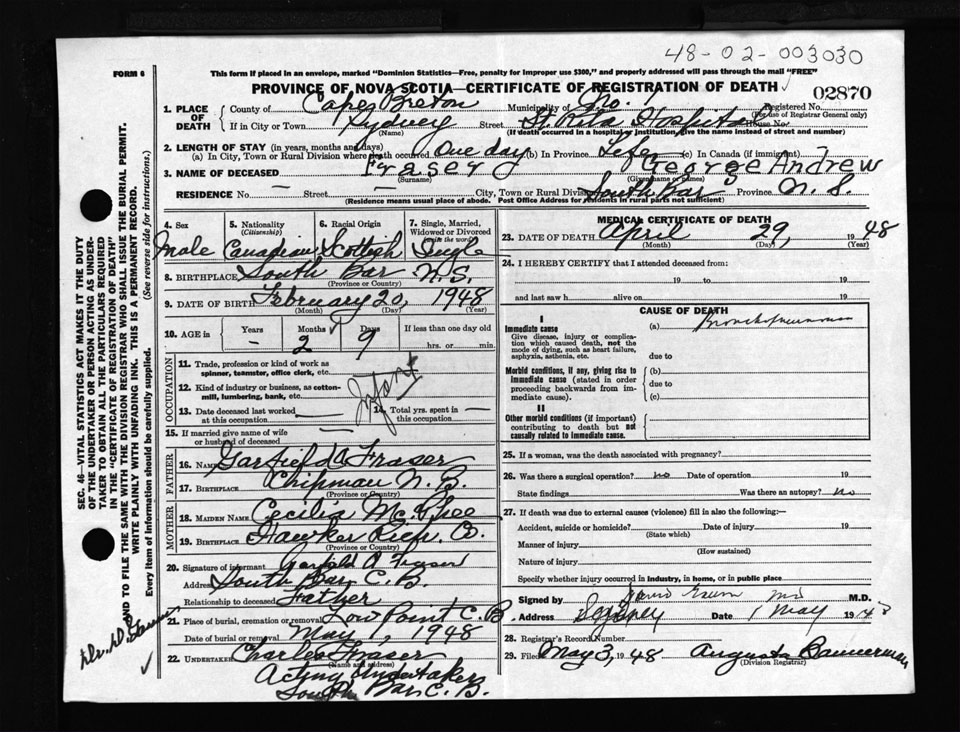 48-02-003030
FORM 6
This form if placed in an envelope, marked "Dominion Statistics—Free, penalty for improper use $300," and properly addressed will pass through the mail "FREE"
PROVINCE OF NOVA SCOTIA—CERTIFICATE OF REGISTRATION OF DEATH
02870
1. PLACE OF DEATH
County of Cape Breton Municipality of No. Registered No.
(For use of Registrar General only)
If in City or Town Sydney Street St. Rita Hospital House No.
(Name) (If death occurred in a hospital or institution, give the name instead of street and number)
2. LENGTH OF STAY (in years, months and days)
(a) In City, Town or Rural Division where death occurred One day (b) In Province Life (c) In Canada (if immigrant)
3. NAME OF DECEASED Fraser George Andrew
(Surname) (Given name or names)
RESIDENCE No. — Street — City, Town or Rural Division South Bar Province N. S.
(Residence means usual place of abode. Post Office Address for residents in rural parts not sufficient)
4. Sex 5. Nationality (Citizenship) 6. Racial Origin 7. Single, Married, Widowed or Divorced (write the word)
Male Canadian Scottish Single
8. BIRTHPLACE South Bar N. S.
(Province or Country)
9. DATE OF BIRTH February 20, 1948
(Month) (Day) (Year)
10. AGE in Years Months Days If less than one day old
— 2 9 hrs. or min.
OCCUPATION
11. Trade, profession or kind of work as spinner, teamster, office clerk, etc. —
12. Kind of industry or business, as cotton-mill, lumbering, bank, etc.
Infant
13. Date deceased last worked at this occupation — 14. Total yrs. spent in this occupation —
15. If married give name of wife or husband of deceased —
FATHER
16. NAME Garfield A Fraser
17. BIRTHPLACE Chipman N. B.
(Province or Country)
MOTHER
18. MAIDEN NAME Cecilia McPhee
19. BIRTHPLACE Hawker C. B.
(Province or Country)
20. Signature of informant Garfield A Fraser
Address South Bar, C. B.
Relationship to deceased Father
21. Place of burial, cremation or removal Low Point C. B.
Date of burial or removal May 1, 1948
22. UNDERTAKER Charles Fraser
(Name and address)
Acting Undertaker
South Bar C. B.
MEDICAL CERTIFICATE OF DEATH
23. DATE OF DEATH April 29, 1948
(Month) (Day) (Year)
24. I HEREBY CERTIFY that I attended deceased from:
19 to 19
and last saw h alive on 19
CAUSE OF DEATH
I
Immediate cause (a) Bronchopneumonia
Give disease, injury or complication which caused death, not the mode of dying, such as heart failure, asphyxia, asthenia, etc.
due to
Morbid conditions, if any, giving rise to immediate cause (stated in order proceeding backwards from immediate cause).
(b)
due to
(c)
II
Other morbid conditions (if important) contributing to death but not causally related to immediate cause.
25. If a woman, was the death associated with pregnancy?
26. Was there a surgical operation? no Date of operation 19
State findings Was there an autopsy? no
27. If death was due to external causes (violence) fill in also the following:—
Accident, suicide or homicide? Date of injury 19
(State which)
Manner of injury
(How sustained)
Nature of injury
Specify whether injury occurred in industry, in home, or in public place
Signed by MD M.D.
Address Sydney Date 1 May 1948
28. Registrar's Record Number
29. Filed May 3, 1948 Augusta Bannerman
(Division Registrar)
SEC. 46—VITAL STATISTICS ACT MAKES IT THE DUTY
OF THE UNDERTAKER OR PERSON ACTING AS UNDER-
TAKER TO OBTAIN ALL THE PARTICULARS REQUIRED
IN THE "CERTIFICATE OF REGISTRATION OF DEATH"
AND TO FILE THE SAME WITH THE DIVISION REGISTRAR WHO SHALL ISSUE THE BURIAL PERMIT.
WRITE PLAINLY WITH UNFADING INK. THIS IS A PERMANENT RECORD.
Every item of information should be carefully supplied. (See reverse side for instructions.)